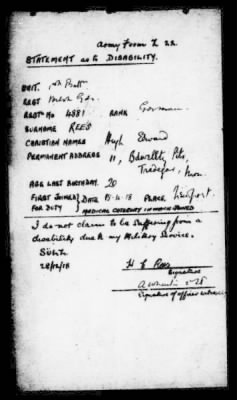 Army Form Z 22.
STATEMENT as to DISABILITY.
UNIT. 1st Battn
REGT Welsh Gds.
REGTL No 4881 RANK Guardsman
SURNAME REES
CHRISTIAN NAMES Hugh Edward
PERMANENT ADDRESS 11, Bedwellty Pits,
Tredegar, Mon.
AGE LAST BIRTHDAY. 20
FIRST JOINED DATE 15.4.18 PLACE Newport.
FOR DUTY MEDICAL CATEGORY IN WHICH JOINED
I do not claim to be suffering from a
disability due to my Military Service.
28/12/18
H E Rees
Signature
Signature of officer